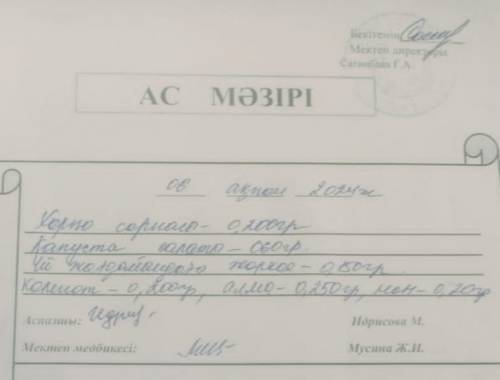 Бекітемін
Мектеп директоры
Сағынбаева Г.А
АС МӘЗІРІ
06 ақпан 2024ж
Харчо сорпасы - 0,200гр
Капуста салаты - 060гр.
Үй жағдайындағы жаркое - 0,150гр.
Компот - 0,200гр, алма - 0,250гр, нан - 0,20гр
Аспазшы: Идрис Идрисова М.
Мектеп медбикесі: Мусина Ж.И.